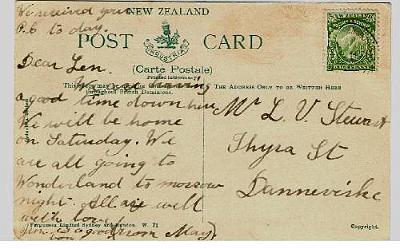 We received your
P.C to day.
NEW ZEALAND
POST CARD
(Carte Postale)
THE ADDRESS ONLY TO BE WRITTEN HERE
Dear Len.
We are having
a good time down here
We will be home
on Saturday. We
are all going to
Wonderland to morrow
night. All are well
with love
from May
Mr L. V. Stewart
Thyra St
Dannevirke
Fergusson Limited Sydney and London. W. 71
Copyright.